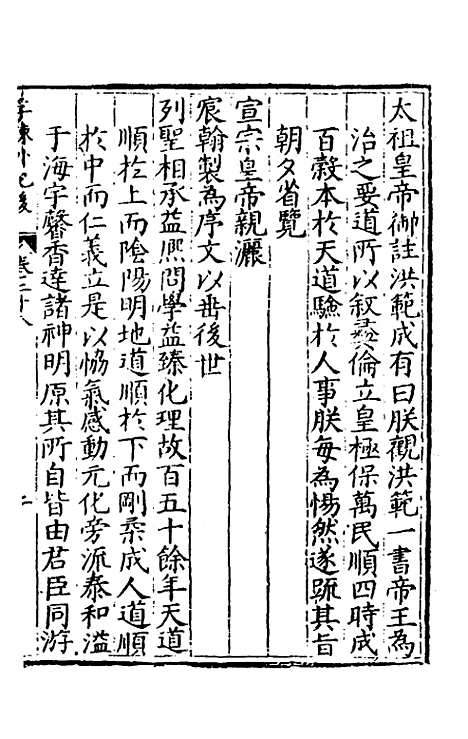 太祖皇帝御註洪範成有曰朕觀洪範一書帝王為
治之要道所以叙彞倫立皇極保萬民順四時成
百穀本於天道驗於人事朕每為惕然遂䟽其旨
朝夕省覽
宣宗皇帝親灑
宸翰製為序文以垂後世
列聖相承益熈問學益臻化理故百五十餘年天道
順於上而陰陽明地道順於下而剛柔成人道順
於中而仁義立是以恊氣感動元化旁派泰和溢
于海宇馨香達諸神明原其所自皆由君臣同游